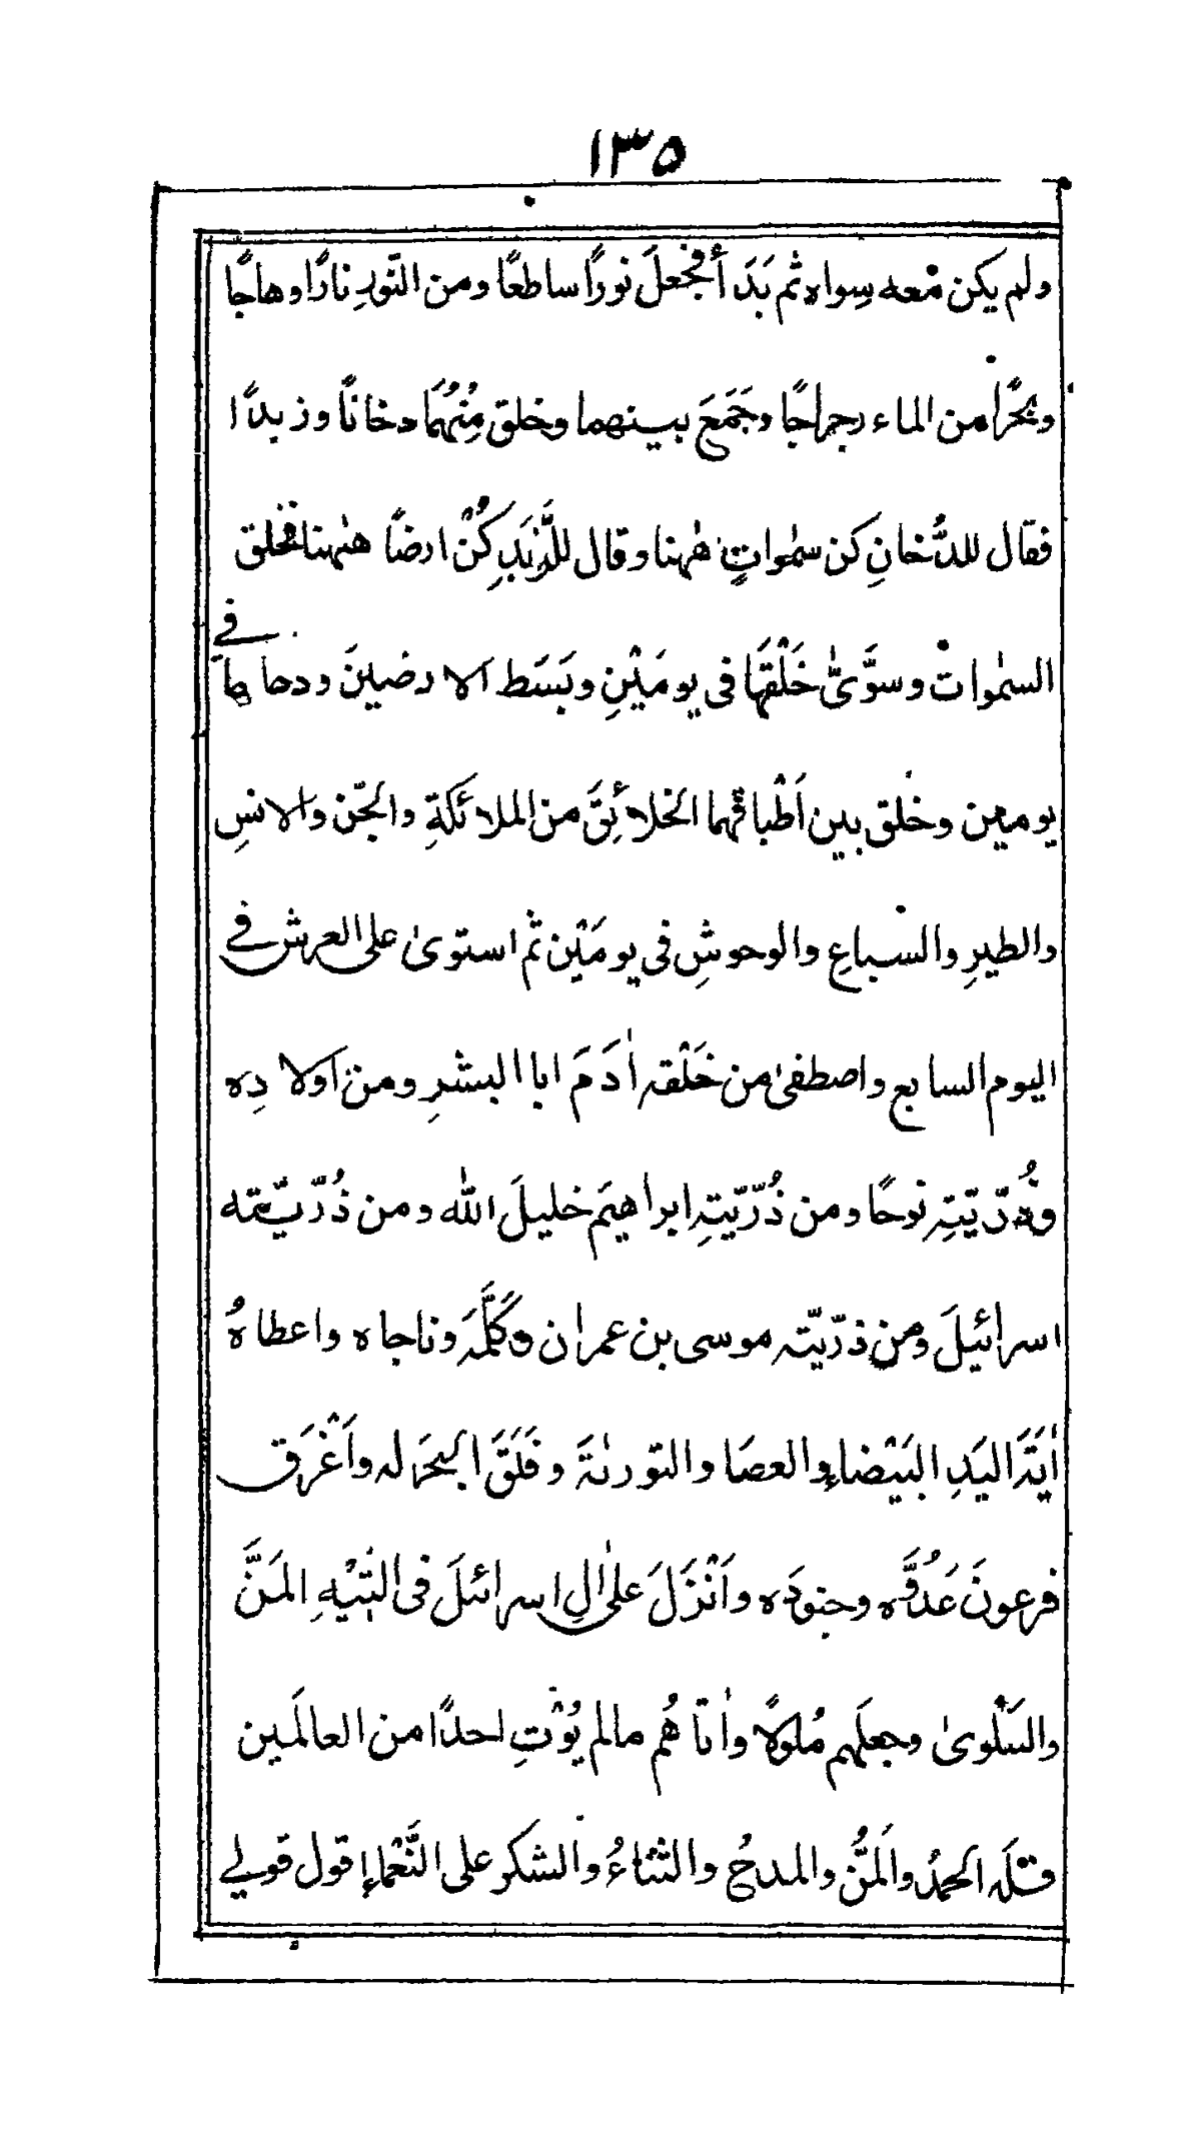 ١٣٥
ولم يكن معه سِواه ثم بَدَأ فجعلَ نورًا ساطعًا ومن النّورِ نارًا وهاجًا
وبحرًا من الماء رجراجًا وجَمَعَ بينهما وخلق مِنْهُمَا دخانًا وزبدًا
فقال للدُّخانِ كن سمٰواتٍ هٰهنا وقال للزَّبَدِ كُنْ ارضًا هٰهنا فخلق
السمٰوات وسوَّىٰ خَلْقَهَا فى يومَيْنِ وبَسَط الارضينَ ودحاها فے
يومين وخلق بين اَطْباقهما الخلائِقَ من الملائكةِ والجّن والانسِ
والطيرِ والسباعِ والوحوشِ فى يومَيْن ثم استوىٰ على العرش فے
اليوم السابع واصطفىٰ من خَلْقہ اٰدَمَ ابا البشرِ ومن اَولادِه
وذُرّيّتِہ نوحًا ومن ذُرّيّتِہ ابراهيمَ خليلَ اللّٰه ومن ذُرّيّته
اسرائيلَ ومن ذرّيّتہ موسى بن عمران وكَلَّمَہ وناجاه واعطاهُ
اٰيَةَ اليَدِ البَيْضاءِ والعصَا والتورىٰةَ وفَلَقَ البحَر لہ واَغْرَق
فرعونَ عَدُوَّه وجنودَه واَنْزَلَ علىٰ اٰلِ اسرائيلَ فى التِّيْهِ المَنَّ
والسَلْوىٰ وجعلَهم مُلوكًا واٰتاهُم مالم يُؤتِ احدًا من العالَمين
فلَہ الحمدُ والمَنُّ والمدحُ والثناءُ والشكر على النَّعْماءِ قول قولے